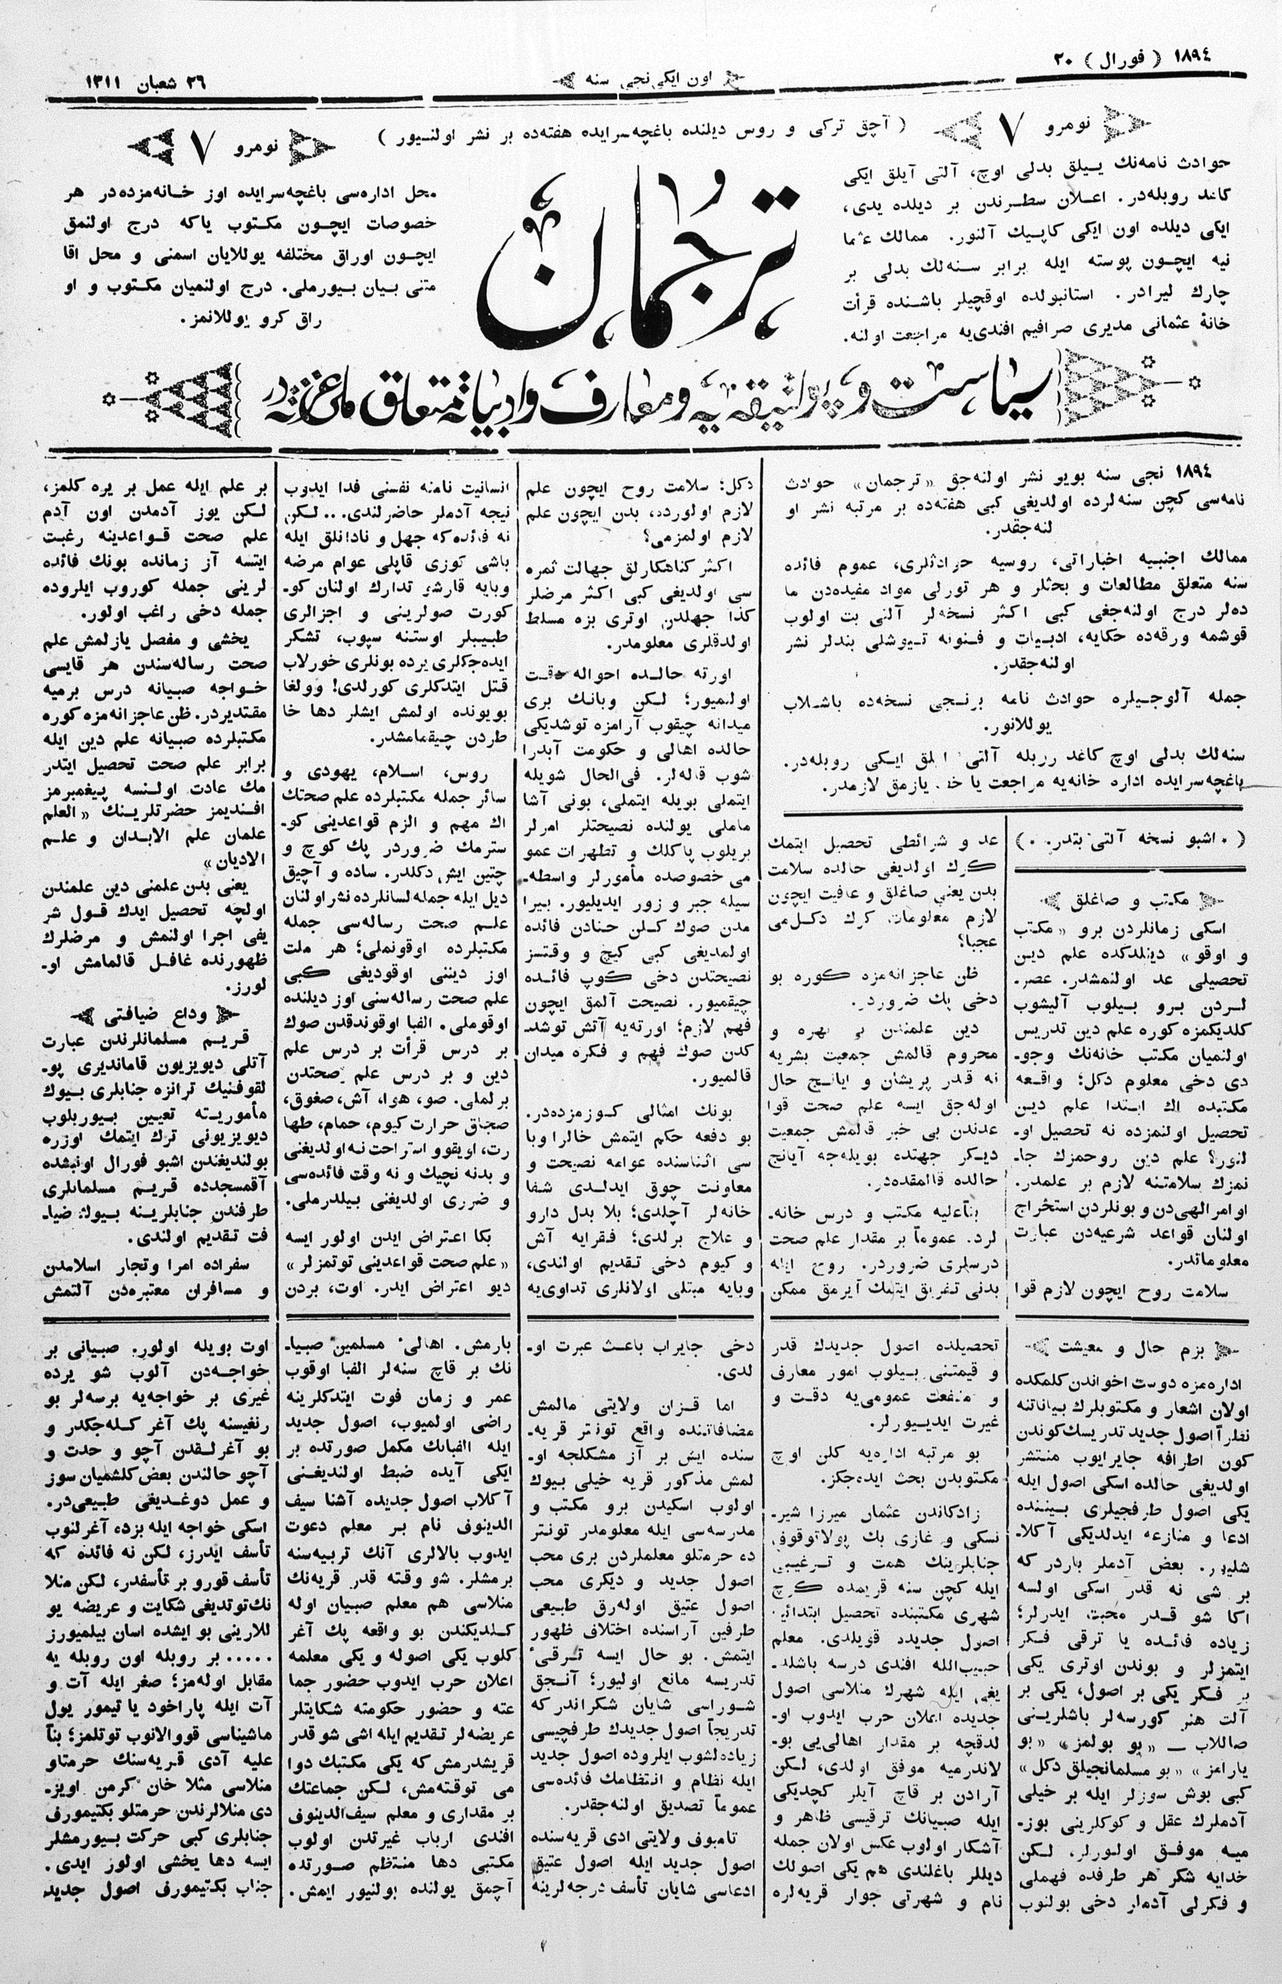 ١٨٩٤ ( فورال ) ٢٠
اون ايكى نجى سنه
٢٦ شعبان ١٣١١
نومرو ٧
( آچق تركى و روس ديلنده باغچه‌سرايده هفته‌ده بر نشر اولنيور )
نومرو ٧
حوادث نامه‌نك ييلق بدلى اوچ، آلتى آيلق ايكى
كاغد روبله‌در. اعلان سطرندن بر ديلده يدى،
ايكى ديلده اون ايكى كاپيك آلنور. ممالك عثما
نيه ايچون پوسته ايله برابر سنه‌لك بدلى بر
چارك ليرادر. استانبولده اوقچيلر باشنده قرأت
خانهٔ عثمانى مديرى صرافيم افندى‌يه مراجعت اولنه.
ترجمان
محل اداره‌سى باغچه‌سرايده اوز خانه‌مزده‌در هر
خصوصات ايچون مكتوب ياكه درج اولنمق
ايچون اوراق مختلفه يوللايان اسمنى و محل اقا
متنى بيان بيورملى. درج اولنميان مكتوب و او
راق كرو يوللانمز.
١٨٩٤ نجى سنه بويو نشر اولنه‌جق «ترجمان» حوادث
نامه‌سى كچن سنه‌لرده اولديغى كبى هفته‌ده بر مرتبه نشر او
لنه‌جقدر.
ممالك اجنبيه اخباراتى، روسيه حوادثلرى، عموم فائده
سنه متعلق مطالعات و بحثلر و هر تورلى مواد مفيده‌دن ما
ده‌لر درج اولنه‌جغى كبى اكثر نسخه‌لر آلتى بت اولوب
قوشمه ورقه‌ده حكايه، ادبيات و فنونه تيوشلى بندلر نشر
اولنه‌جقدر.
جمله آلوجيلره حوادث نامه برنجى نسخه‌ده باشلاب
يوللانور.
سنه‌لك بدلى اوچ كاغد روبله آلتى آيلق ايكى روبله‌در.
باغچه‌سرايده اداره خانه‌يه مراجعت يا خط يازمق لازمدر.
( ٠ اشبو نسخه آلتى بتدر. ٠ )
مكتب و صاغلق
اسكى زمانلردن برو «مكتب
و اوقو» دينلدكده علم دين
تحصيلى عد اولنمشدر. عصر-
لردن برو بيلوب آليشوب
كلديكمزه كوره علم دين تدريس
اولنميان مكتب خانه‌نك وجو-
دى دخى معلوم دكل؛ واقعه
مكتبده اك ابتدا علم دين
تحصيل اولنمزده نه تحصيل او-
لنور؟ علم دين روحمزك جا-
نمزك سلامتنه لازم بر علمدر.
اوامر الهى‌دن و بونلردن استخراج
اولنان قواعد شرعيه‌دن عبارت
معلوماتدر.
سلامت روح ايچون لازم قوا
عد و شرائطى تحصيل ايتمك
كرك اولديغى حالده سلامت
بدن يعنى صاغلق و عافيت ايچون
لازم معلومات كرك دكل‌مى
عجبا؟
ظن عاجزانه‌مزه كوره بو
دخى پك ضروردر.
دين علمندن بى بهره و
محروم قالمش جمعيت بشريه
نه قدر پريشان و ايانچ حال
اوله‌جق ايسه علم صحت قوا
عدندن بى خبر قالمش جمعيت
ديكر جهتده بويله‌جه آيانچ
حالده قالمقده‌در.
بناءً عليه مكتب و درس خانه-
لرد. عموماً بر مقدار علم صحت
درسلرى ضروردر. روح ايله
بدنى تفريق ايتمك آيرمق ممكن
دكل؛ سلامت روح ايچون علم
لازم اولورده، بدن ايچون علم
لازم اولمزمى؟
اكثر كناهكارلق جهالت ثمره
سى اولديغى كبى اكثر مرضلر
كذا جهلدن اوترى بزه مسلط
اولدقلرى معلومدر.
اورته حالده احواله دقت
اولنميور؛ لكن وبانك برى
ميدانه چيقوب آرامزه توشديكى
حالده اهالى و حكومت آبدرا
شوب قاله‌لر. فى‌الحال شويله
ايتملى بويله ايتملى، بونى آشا
ماملى يولنده نصيحتلر امرلر
بريلوب پاكلك و تطهرات عمو
مى خصوصده مأمورلر واسطه-
سيله جبر و زور ايديليور. بيرا
مدن صوك كلن حنادن فائده
اولمديغى كبى كيچ و وقتسز
نصيحتدن دخى كوپ فائده
چيقميور. نصيحت آلمق ايچون
فهم لازم؛ اورته‌يه آتش توشد-
كدن صوك فهم و فكره ميدان
قالميور.
بونك امثالى كوزمزده‌در.
بو دفعه حكم ايتمش خالراوبا
سى اثناسنده عوامه نصيحت و
معاونت چوق ايدلدى شفا
خانه‌لر آچلدى؛ بلا بدل دارو
و علاج برلدى؛ فقرايه آش
و كيوم دخى تقديم اولندى،
وبايه مبتلى اولانلرى تداوى‌يه
انسانيت نامنه نفسنى فدا ايدوب
نيچه آدملر حاضرلندى... لكن
نه فائده‌كه جهل و نادانلق ايله
باشى كوزى قاپلى عوام مرضه
وبايه قارشو تدارك اولنان كو-
كورت صولرينى و اجزالرى
طبيبلر اوستنه سپوب، تشكر
ايده‌جكلرى يرده بونلرى خورلاب
قتل ايتدكلرى كورلدى! وولغا
بويونده اولمش ايشلر دها خا
طردن چيقمامشدر.
روس، اسلام، يهودى و
سائر جمله مكتبلرده علم صحتك
اك مهم و الزم قواعدينى كو-
سترمك ضروردر پك كوچ و
چتين ايش دكلدر. ساده و آچيق
ديل ايله جمله لسانلرده نشر اولنان
علم صحت رساله‌سى جمله
مكتبلرده اوقونملى؛ هر ملت
اوز دينى اوقوديغى كبى
علم صحت رساله‌سنى اوز ديلنده
اوقوملى. الفبا اوقوندقدن صوك
بر درس قرأت بر درس علم
دين و بر درس علم صحتدن
برلملى. صو، هوا، آش، صغوق،
صجاق حرارت كيوم، حمام، طها
رت، اويقوو استراحت نه اولديغنى
و بدنه نچيك و نه وقت فائده‌سى
و ضررى اولديغنى بيلدرملى.
بكا اعتراض ايدن اولور ايسه
«علم صحت قواعدينى توتمزلر»
ديو اعتراض ايدر. اوت، بردن
بر علم ايله عمل بر يره كلمز،
لكن يوز آدمدن اون آدم
علم صحت قواعدينه رغبت
ايتسه آز زمانده بونك فائده
لرينى جمله كوروب ايلروده
جمله دخى راغب اولور.
يخشى و مفصل يازلمش علم
صحت رساله‌سندن هر قايسى
خواجه صبيانه درس برميه
مقتديردر. ظن عاجزانه‌مزه كوره
مكتبلرده صبيانه علم دين ايله
برابر علم صحت تحصيل ايتدر
مك عادت اولنسه پيغمبرمز
افنديمز حضرتلرينك «العلم
علمان علم الابدان و علم
الاديان»
يعنى بدن علمنى دين علمندن
اولچه تحصيل ايدك قول شر
يفى اجرا اولنمش و مرضلرك
ظهورنده غافل قالمامش او-
لورز.
وداع ضيافتى
قريم مسلمانلرندن عبارت
آتلى ديويزيون قامانديرى پو-
لقوفنيك ترانزه جنابلرى بيوك
مأموريته تعيين بيوريلوب
ديويزيونى ترك ايتمك اوزره
بولنديغندن اشبو فورال اونبشده
آقمسجدده قريم مسلمانلرى
طرفندن جنابلرينه بيوك ضيا-
فت تقديم اولندى.
سفراده امرا وتجار اسلامدن
و مسافران معتبره‌دن آلتمش
بزم حال و معيشت
اداره‌مزه دوست اخواندن كلمكده
اولان اشعار و مكتوبلرك بياناتنه
نظراً اصول جديد تدريسك كوندن
كون اطرافه جايرايوب منتشر
اولديغى حالده اسكى اصول ايله
يكى اصول طرفچيلرى بيننده
ادعا و منازعه ايدلديكى آكلا-
شليور. بعض آدملر باردر كه
بر شى نه قدر اسكى اولسه
اكا شو قدر محبت ايدرلر؛
زياده فائده يا ترقى فكر
ايتمزلر و بوندن اوترى يكى
بر فكر يكى بر اصول، يكى بر
آلت هنر كورسه‌لر باشلرينى
صاللاب — «بو بولمز» «بو
يارامز» «بو مسلمانجيلق دكل»
كبى بوش سوزلر ايله بر خيلى
آدملرك عقل و كوكلرينى بوز-
ميه موفق اولورلر، لكن
خدايه شكر هر طرفده فهملى
و فكرلى آدملر دخى بولنوب
تحصيلده اصول جديدك قدر
و قيمتنى بيلوب امور معارف
و منفعت عموميه‌يه دقت و
غيرت ايديبورلر.
بو مرتبه اداره‌يه كلن اوچ
مكتوبدن بحث ايده‌جكز.
زادكاندن عثمان ميرزا شير-
نسكى و غازى بك پولاتوقوف
جنابلرينك همت و ترغيبى
ايله كچن سنه قريمده كرچ
شهرى مكتبنده تحصيل ابتدائى
اصول جديده قويلدى. معلم
حبيب‌الله افندى درسه باشلد-
يغى ايله شهرك منلاسى اصول
جديده اعلان حرب ايدوب او-
لدقچه بر مقدار اهالى‌يى بو-
لاندرميه موفق اولدى، لكن
آرادن بر قاچ آيلر كچديكى
ايله صبيانك ترقيسى ظاهر و
آشكار اولوب عكس اولان جمله
ديللر باغلندى هم يكى اصولك
نام و شهرتى جوار قريه‌لره
دخى جايراب باعث عبرت او-
لدى.
اما قزان ولايتى مالمش
مضافاتنده واقع تونتر قريه-
سنده ايش بر آز مشكلجه او-
لمش مذكور قريه خيلى بيوك
اولوب اسكيدن برو مكتب و
مدرسه‌سى ايله معلومدر تونتر
ده حرمتلو معلملردن برى محب
اصول جديد و ديكرى محب
اصول عتيق اوله‌رق طبيعى
طرفين آراسنده اختلاف ظهور
ايتمش. بو حال ايسه ترقىٔ
تدريسه مانع اوليور؛ آنجق
شوراسى شايان شكراندر كه
تدريجاً اصول جديدك طرفچيسى
زياده‌لشوب ايلروده اصول جديد
ايله نظام و انتظامك فائده‌سى
عموماً تصديق اولنه‌جقدر.
تامبوف ولايتى ادى قريه‌سنده
اصول جديد ايله اصول عتيق
ادعاسى شايان تأسف درجه‌لرينه
بارمش. اهالىٔ مسلمين صبيا-
نك بر قاچ سنه‌لر الفبا اوقوب
عمر و زمان فوت ايتدكلرينه
راضى اولميوب، اصول جديد
ايله الفبانك مكمل صورتده بر
ايكى آيده ضبط اولنديغنى
آكلاب اصول جديده آشنا سيف
الدينوف نام بر معلم دعوت
ايدوب بالالرى آنك تربيه‌سنه
برمشلر. شو وقته قدر قريه‌نك
منلاسى هم معلم صبيان اوله
كلديكندن بو واقعه پك آغر
كلوب يكى اصوله و يكى معلمه
اعلان حرب ايدوب حضور جما
عته و حضور حكومته شكايتلر
عريضه‌لر تقديم ايله اشى شو قدر
قريشدرمش كه يكى مكتبك دوا
مى توقته‌مش، لكن جماعتك
بر مقدارى و معلم سيف‌الدينوف
افندى ارباب غيرتدن اولوب
مكتبى دها منتظم صورتده
آچمق يولنده بولنيور ايمش.
اوت بويله اولور. صبيانى بر
خواجه‌دن آلوب شو يرده
غيرى بر خواجه‌يه برسه‌لر بو
رنفيسنه پك آغر كله‌جكدر و
بو آغرلقدن آچو و حدت و
آچو حالندن بعض كلشميان سوز
و عمل دوغديغى طبيعى‌در.
اسكى خواجه ايله بزده، آغرلنوب
تأسف ايدرز، لكن نه فائده كه
تأسف قورو بر تأسفدر، لكن منلا
نك توتديغى شكايت و عريضه يو
للارينى بو ايشده اسان بيلميورز
..... بر روبله اون روبله يه
مقابل اوله‌مز؛ صغر ايله آت و
آت ايله پاراخود يا تيمور يول
ماشيناسى قووالانوب توتلمز؛ بناً
عليه آدى قريه‌سنك حرمتلو
منلاسى مثلا خان كرمن اويز-
دى منلالرندن حرمتلو بكتيمورف
جنابلرى كبى حركت بيورمشلر
ايسه دها يخشى اولور ايدى.
جناب بكتيمورف اصول جديد